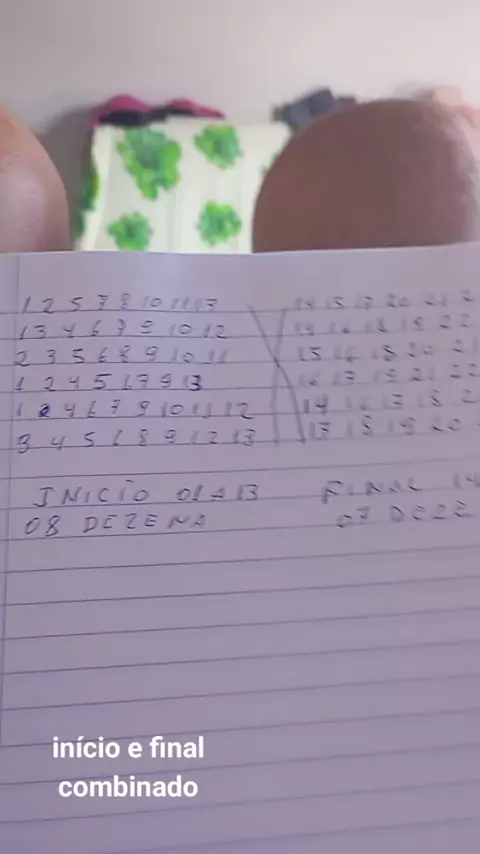 1 2 5 7 8 10 11 13 14 15 17 20 21
1 3 4 6 7 9 10 12 14 16 18 19 22
2 3 5 6 8 9 10 11 15 16 18 20 21
1 2 4 5 6 7 9 13 16 17 19 21 22
1 2 4 6 7 9 10 11 12 14 16 17 18
3 4 5 6 8 9 12 13 17 18 19 20
INICIO 01 A 13 FINAL 14
08 DEZENA 07 DEZE
início e final
combinado